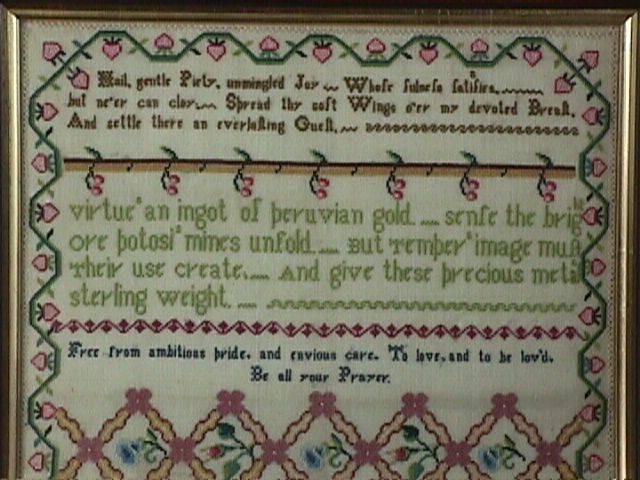 Hail, gentle Piety, unmingled Joy Whoſe fulneſs ſatiſfies,
but ne'er can cloy, Spread thy soft Wings o'er my devoted Breaſt,
And settle there an everlaſting Gueſt,
virtue's an ingot of peruvian gold senſe the brigh
ore potosi's mines unfold But Temper's image muſt
Their use create, And give these precious metal
sterling weight.
Free from ambitious pride, and envious care, To love, and to be lov'd,
Be all your Prayer.